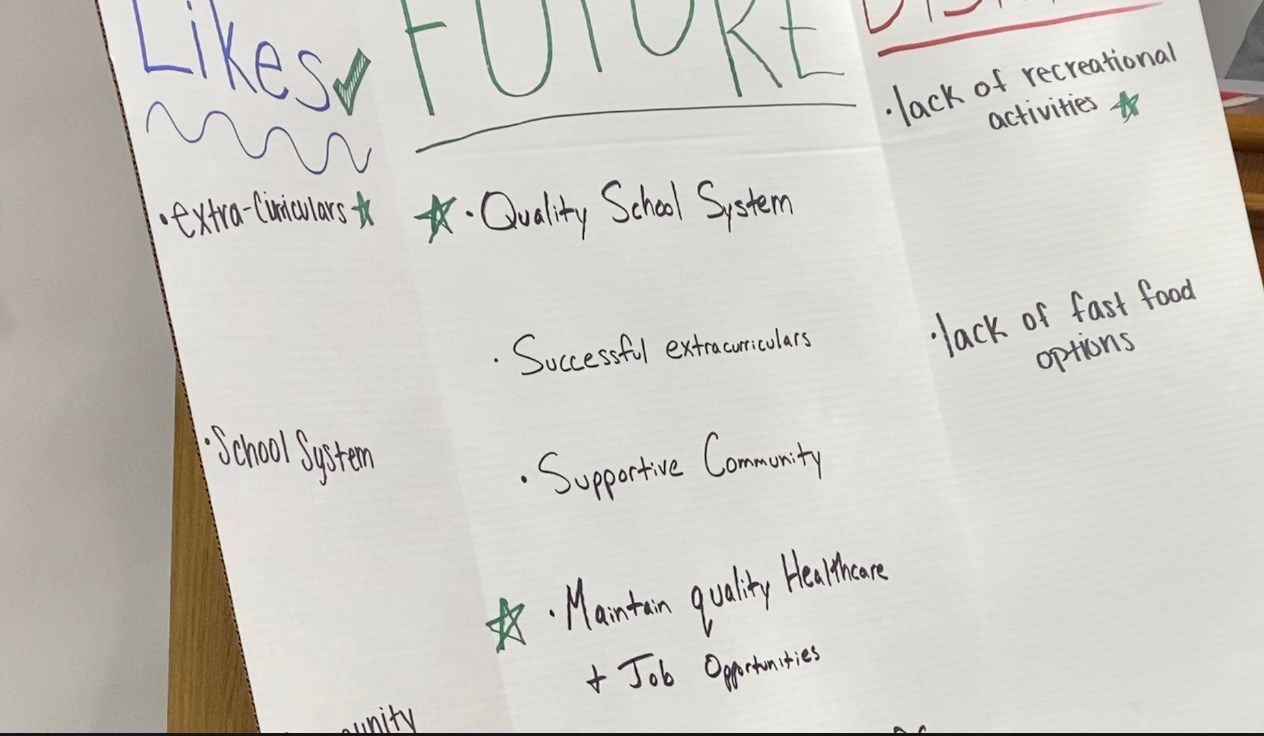 Likes
• extra-Curiculars
• School System
FUTURE
• Quality School System
• Successful extracurriculars
• Supportive Community
• Maintain quality Healthcare
+ Job Opportunities
• lack of recreational
activities
• lack of fast food
options